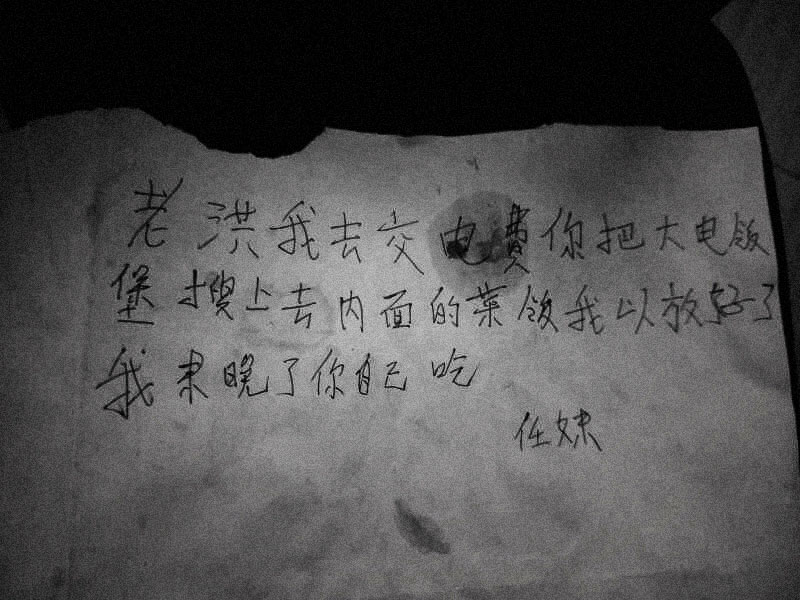 老洪我去交电费你把大电饭
堡搜上去内面的菜饭我以放好了
我来晚了你自己吃
任妹